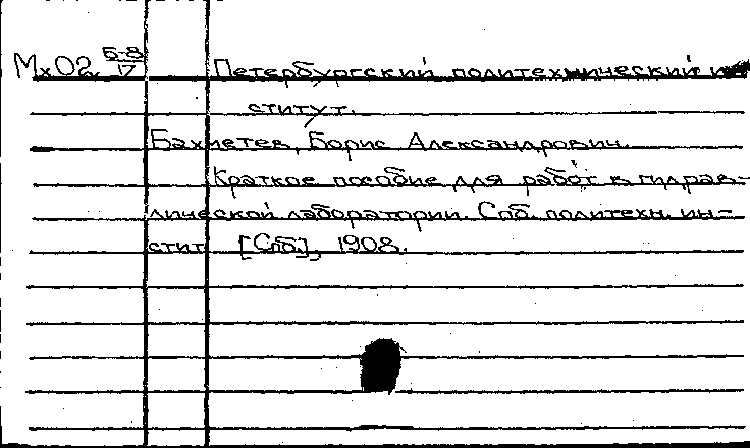 Мх02 Б-8/17 Петербургский политехнический ин-
ститут.
Бахметев, Борис Александрович.
Краткое пособие для работ в гидрав-
лической лаборатории Спб. политехн. ин-
стит [Спб.], 1908.